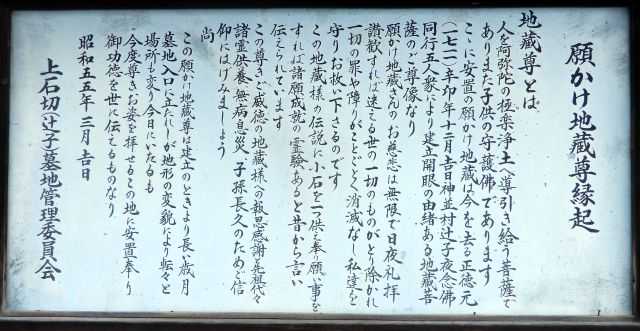 願かけ地蔵尊縁起
地蔵尊とは
人を阿弥陀の極楽浄土へ導引き給う菩薩で
ありまた子供の守護佛であります
こゝに安置の願かけ地蔵は今を去る正徳元
(一七一一)辛卯年十二月吉日神並村辻子夜念佛
同行五人衆により建立開眼の由緒ある地蔵菩
薩のご尊像なり
願かけ地蔵さんのお慈悲は無限で日夜礼拝
讃歎すれば迷える世の一切のものがとり除かれ
一切の罪や障りがことごとく消滅なし私達を
守りお救い下さるのです
この地蔵様の伝説に小石を一つ供え奉り願い事を
すれば諸願成就の霊験あると昔から言い
伝えられています
この尊きご威徳の地蔵様への報恩感謝と先祖代々
諸霊供養無病息災子孫長久のためご信
仰にはげみましょう
尚
この願かけ地蔵尊は建立のときより長い歳月
墓地入口に立たれしが地形の変貌により転々と
場所も変り今日にいたるも
今度尊きお姿を拝せるこの地に安置奉り
御功徳を世に伝えるものなり
昭和五五年三月吉日
上石切(辻子)墓地管理委員会